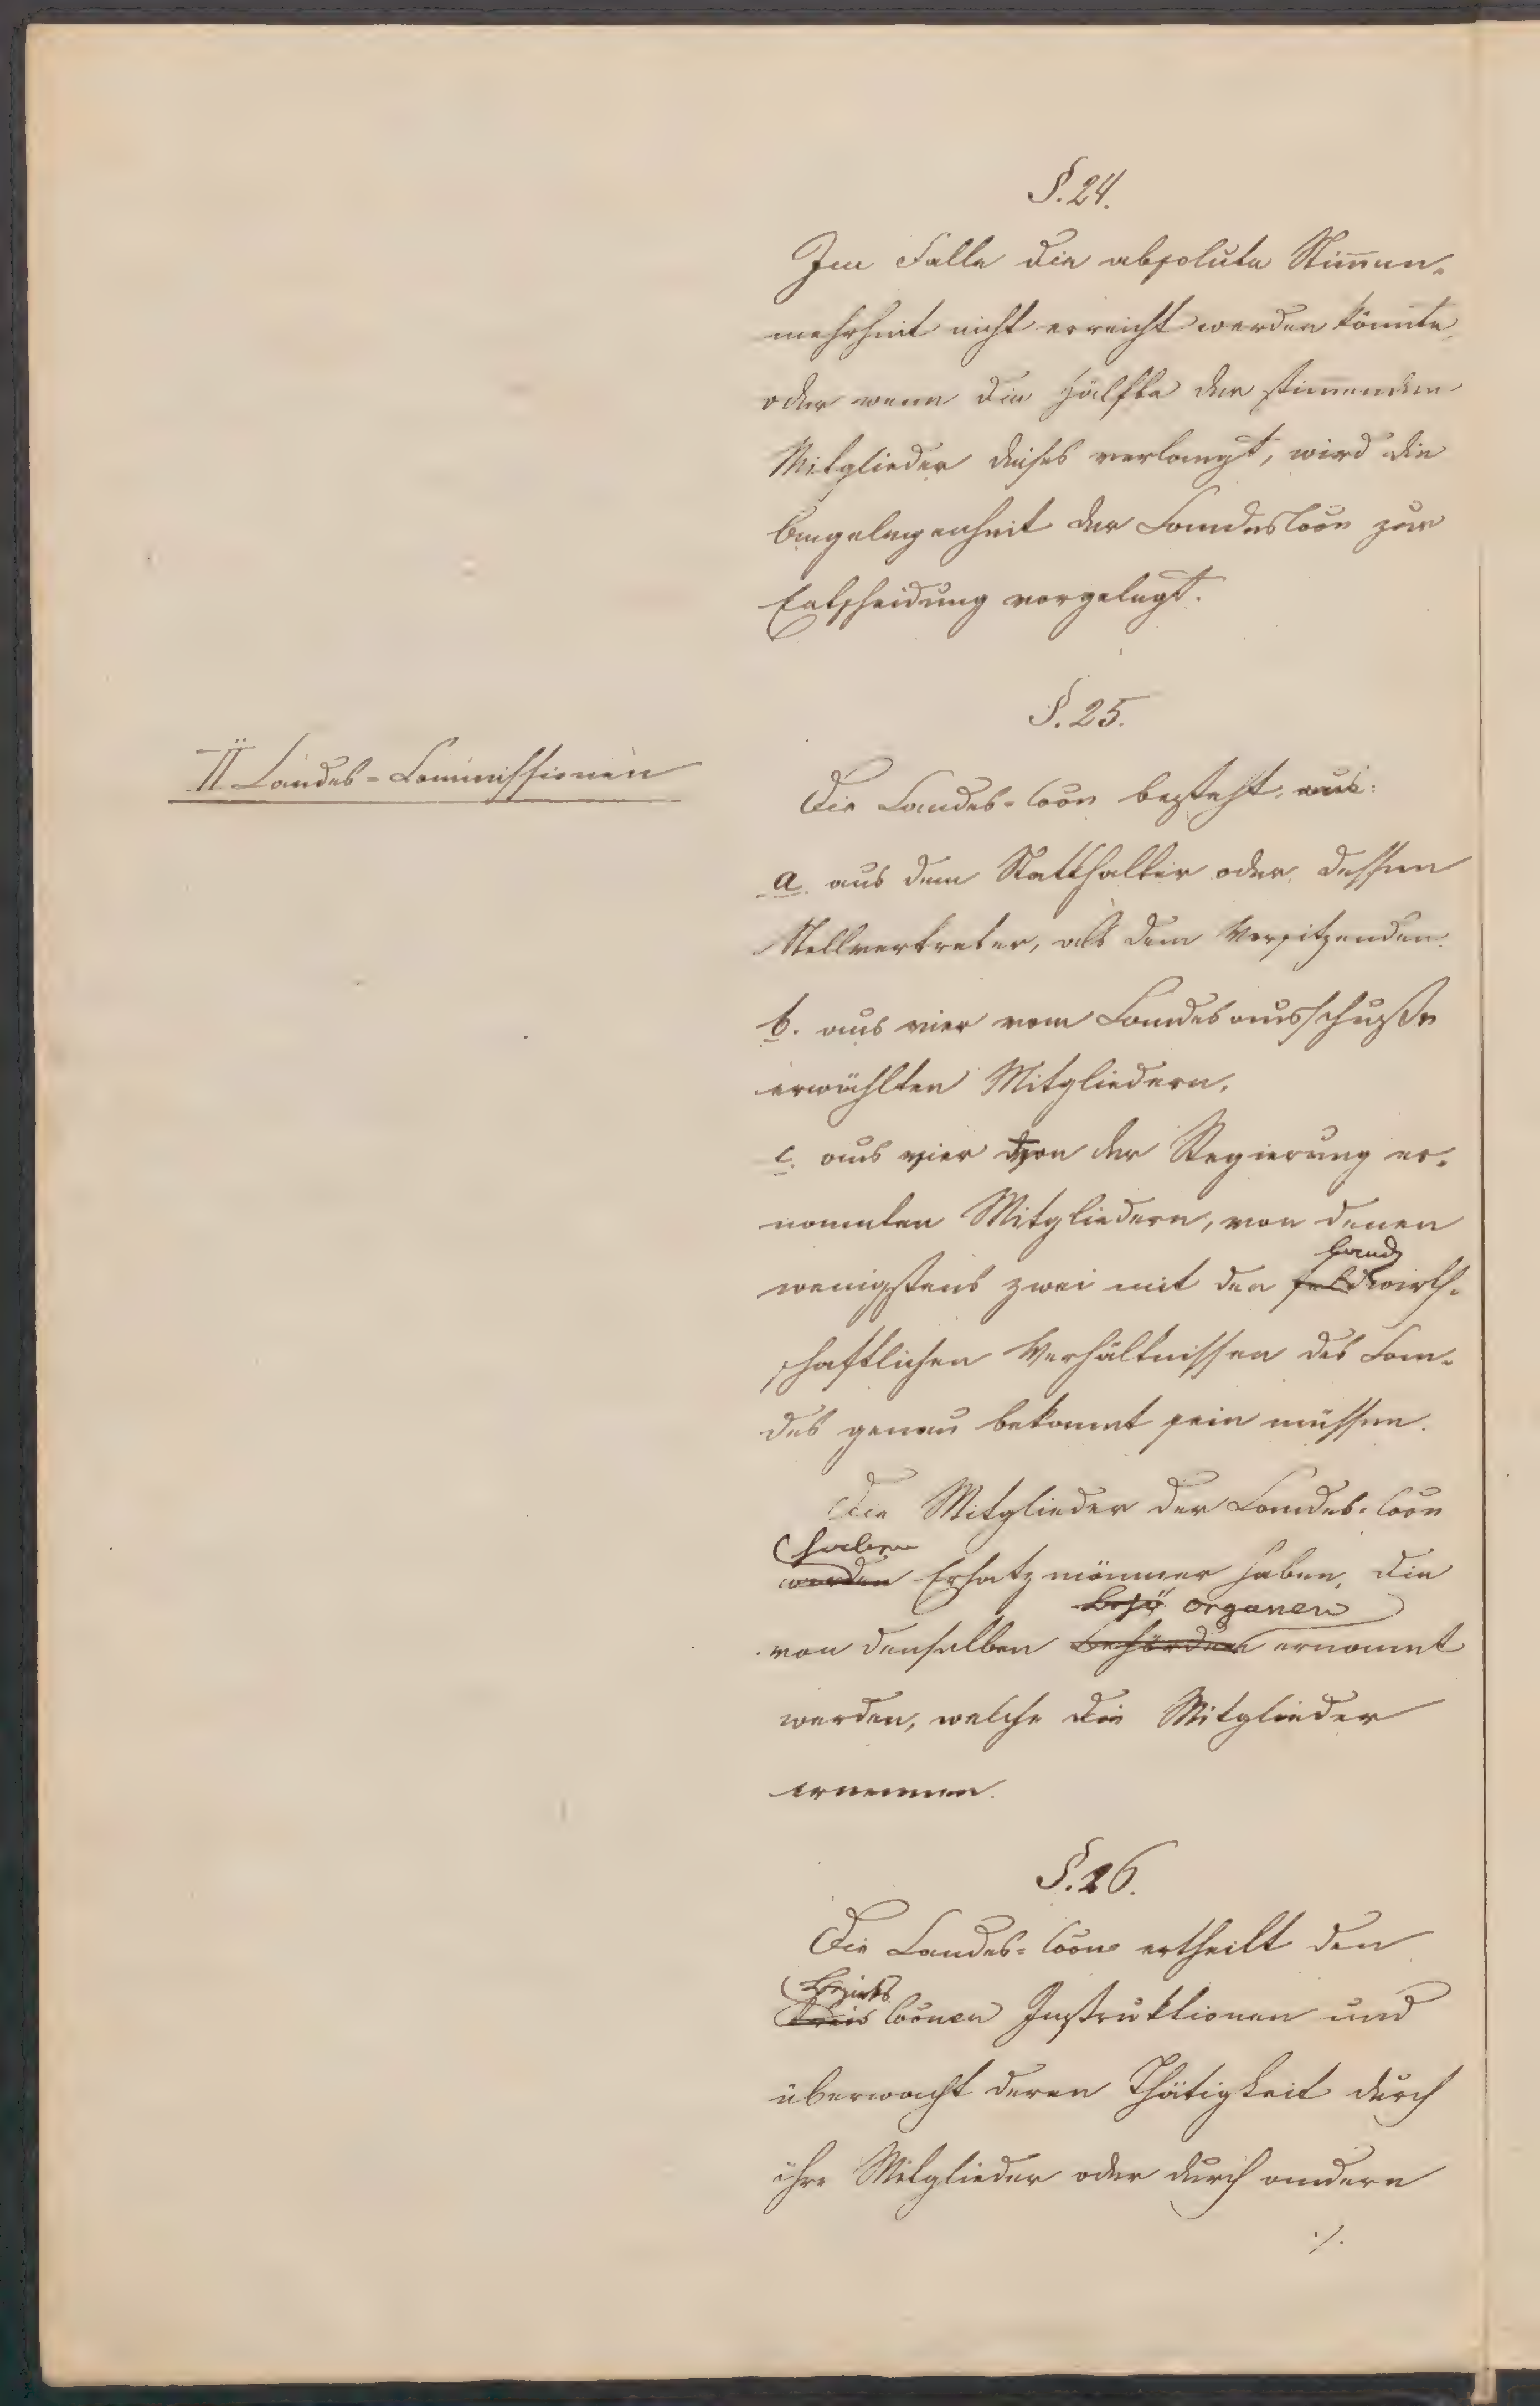 §. 24.
Im Falle die absolute Stim̄en-
mehrheit nicht erreicht werden könnte,
oder wenn die Hälfte der stim̄enden
Mitglieder dieses verlangt, wird die
Angelegenheit der Landescoon zur
Entscheidung vorgelegt.
§. 25.
II. Landes-Commissionen
Die Landes-Coon besteht, aus:
a. aus dem Statthalter oder dessen
Stellvertreter, als dem Vorsitzenden.
b. aus vier vom Landesausschuße
erwählten Mitgliedern,
c. aus vier von der Regierung er-
nannten Mitgliedern, von denen
land
wenigstens zwei mit den feldwirth-
schaftlichen Verhältnissen des Lan-
des genau bekannt sein müssen.
Die Mitglieder der Landes-Coon
haben
werden Ersatzmänner haben, die
Behö organen
von denselben Behörden ernannt
werden, welche die Mitglieder
ernennen.
§. 26.
Die Landes-Coon ertheilt den
Bezirks
Kreis Coonen Instruktionen und
überwacht deren Thätigkeit durch
ihre Mitglieder oder durch andere
./.